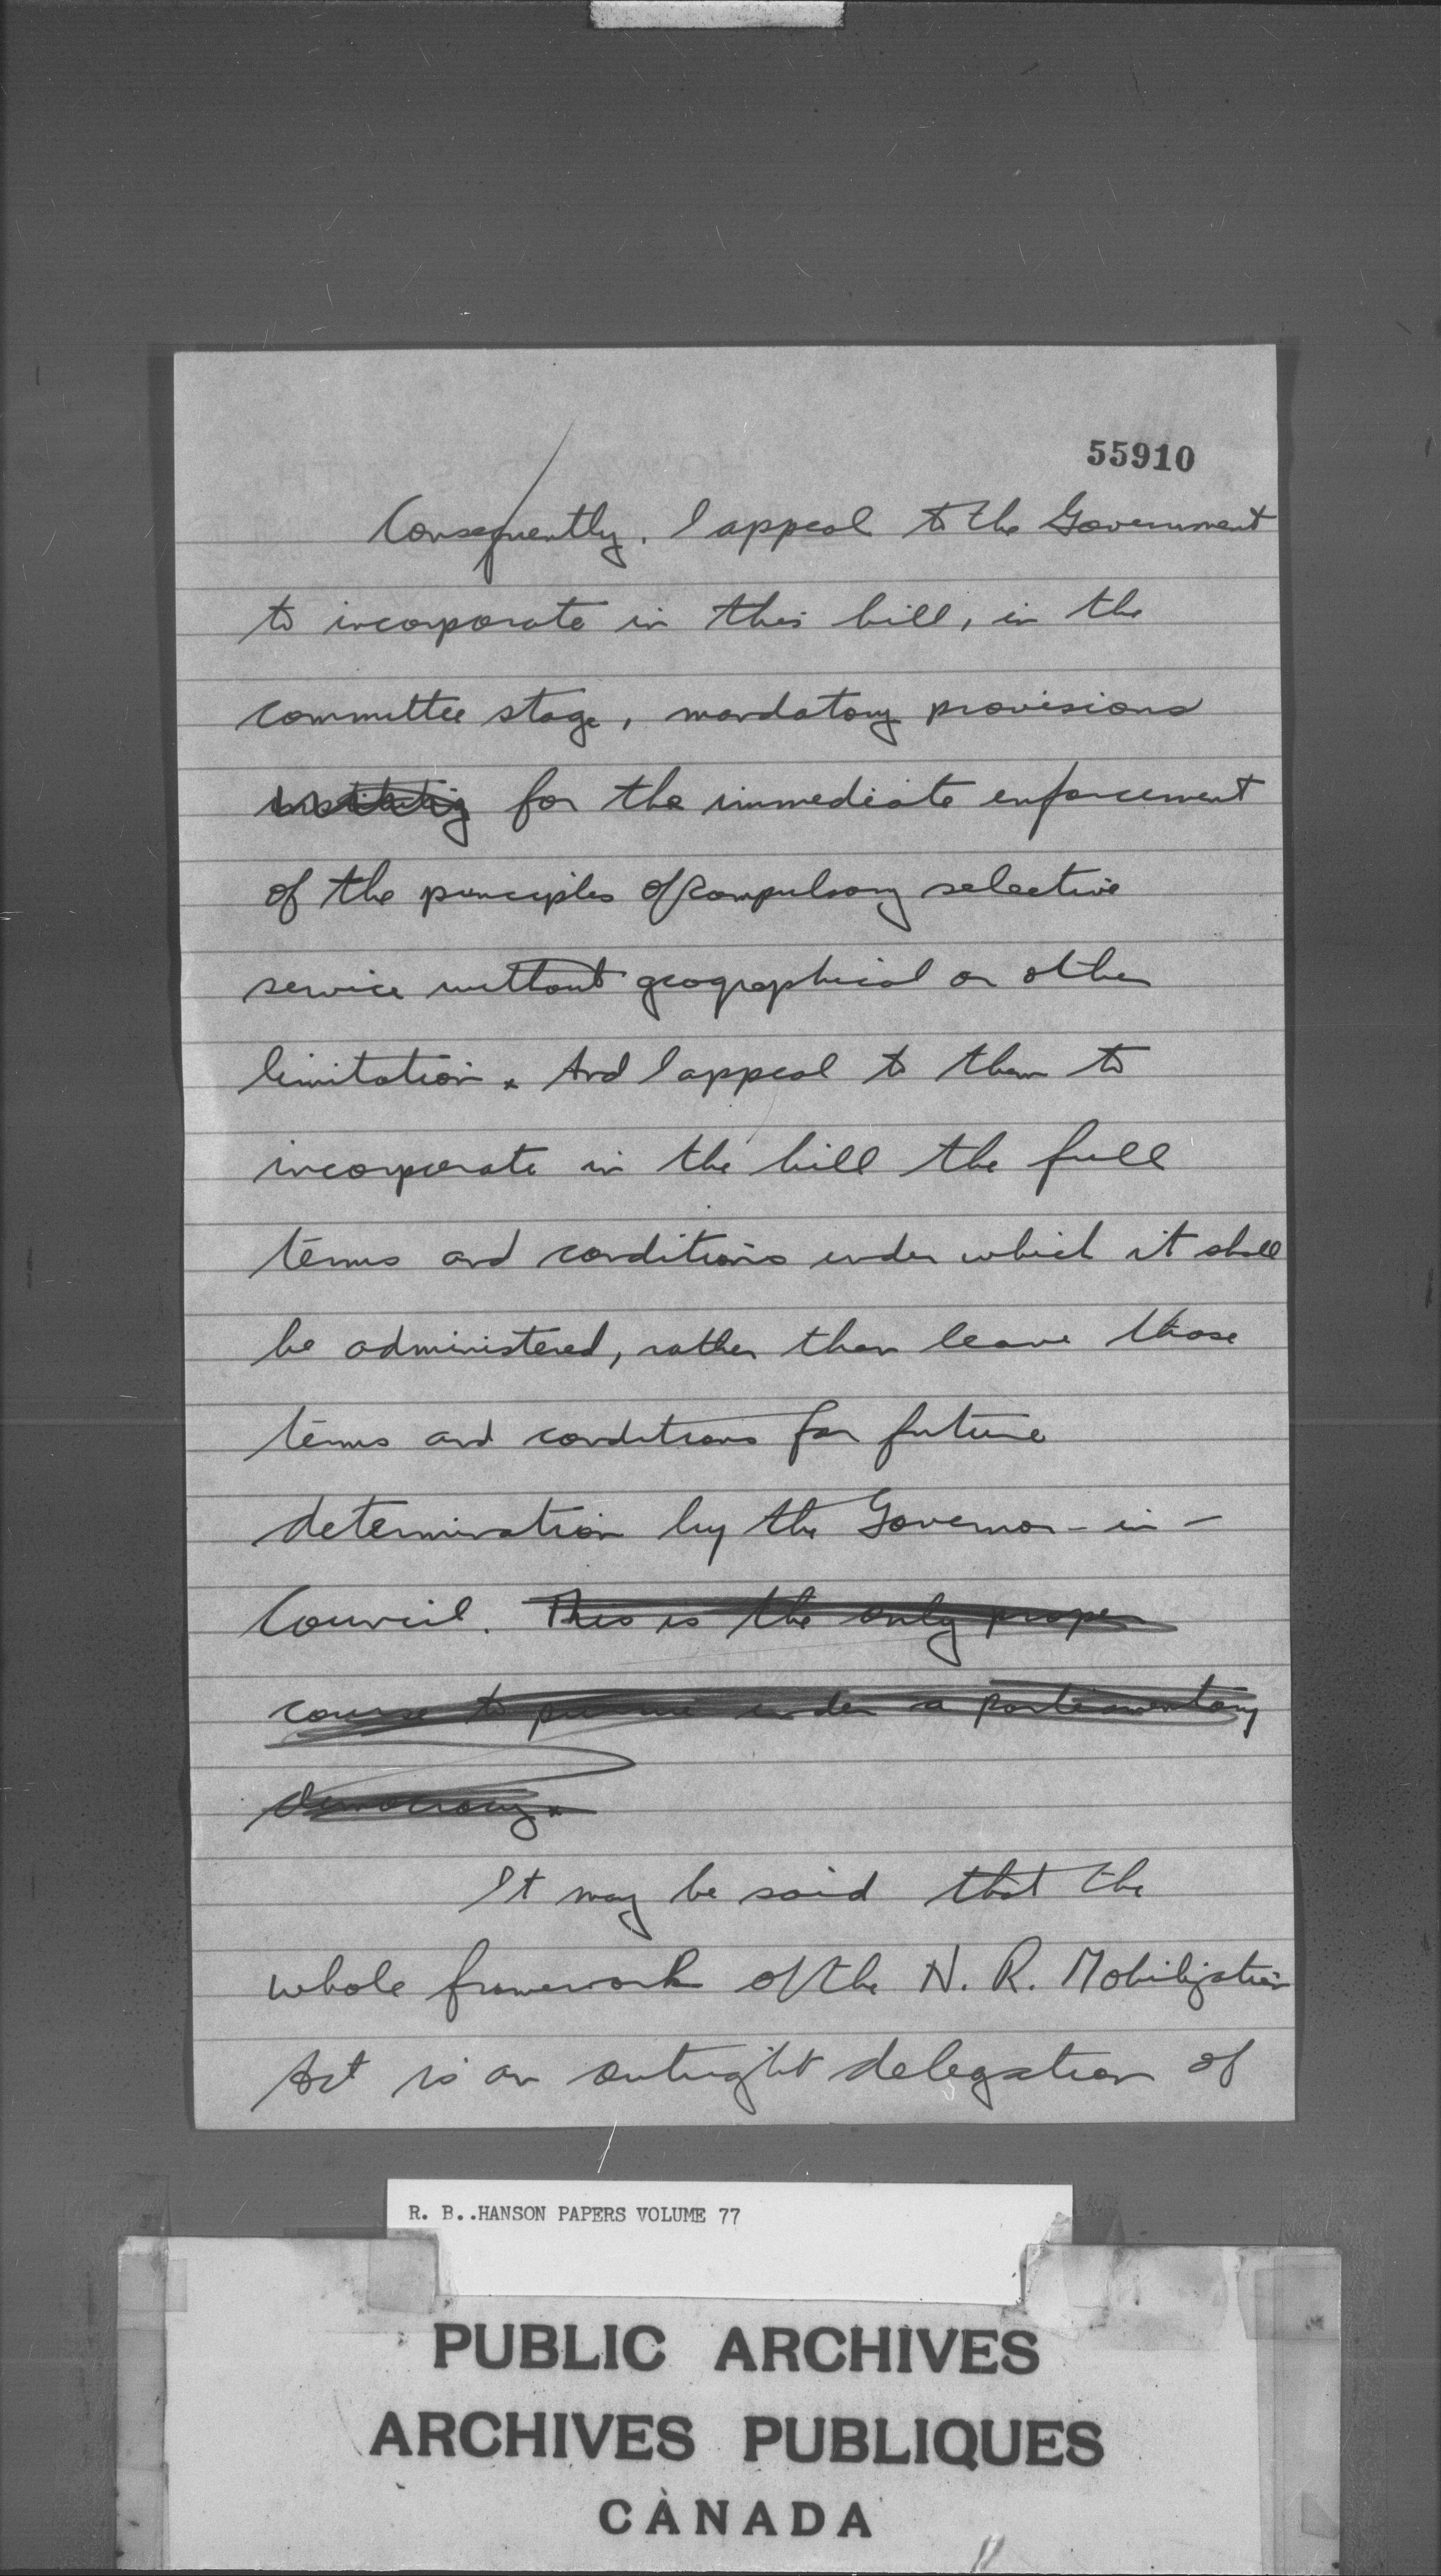 55910
Consequently, I appeal to the Government
to incorporate in this bill, in the
committee stage, mandatory provisions
instituting for the immediate enforcement
of the principles of compulsory selective
service without geographical or other
limitation. And I appeal to them to
incorporate in the bill the full
terms and conditions under which it shall
be administered, rather than leave those
terms and conditions for future
determination by the Governor-in-
Council. This is the only proper
course to pursue under a parliamentary
democracy.
It may be said that the
whole framework of the N. R. Mobilization
Act is an outright delegation of
R. B..HANSON PAPERS VOLUME 77
PUBLIC ARCHIVES
ARCHIVES PUBLIQUES
CANADA